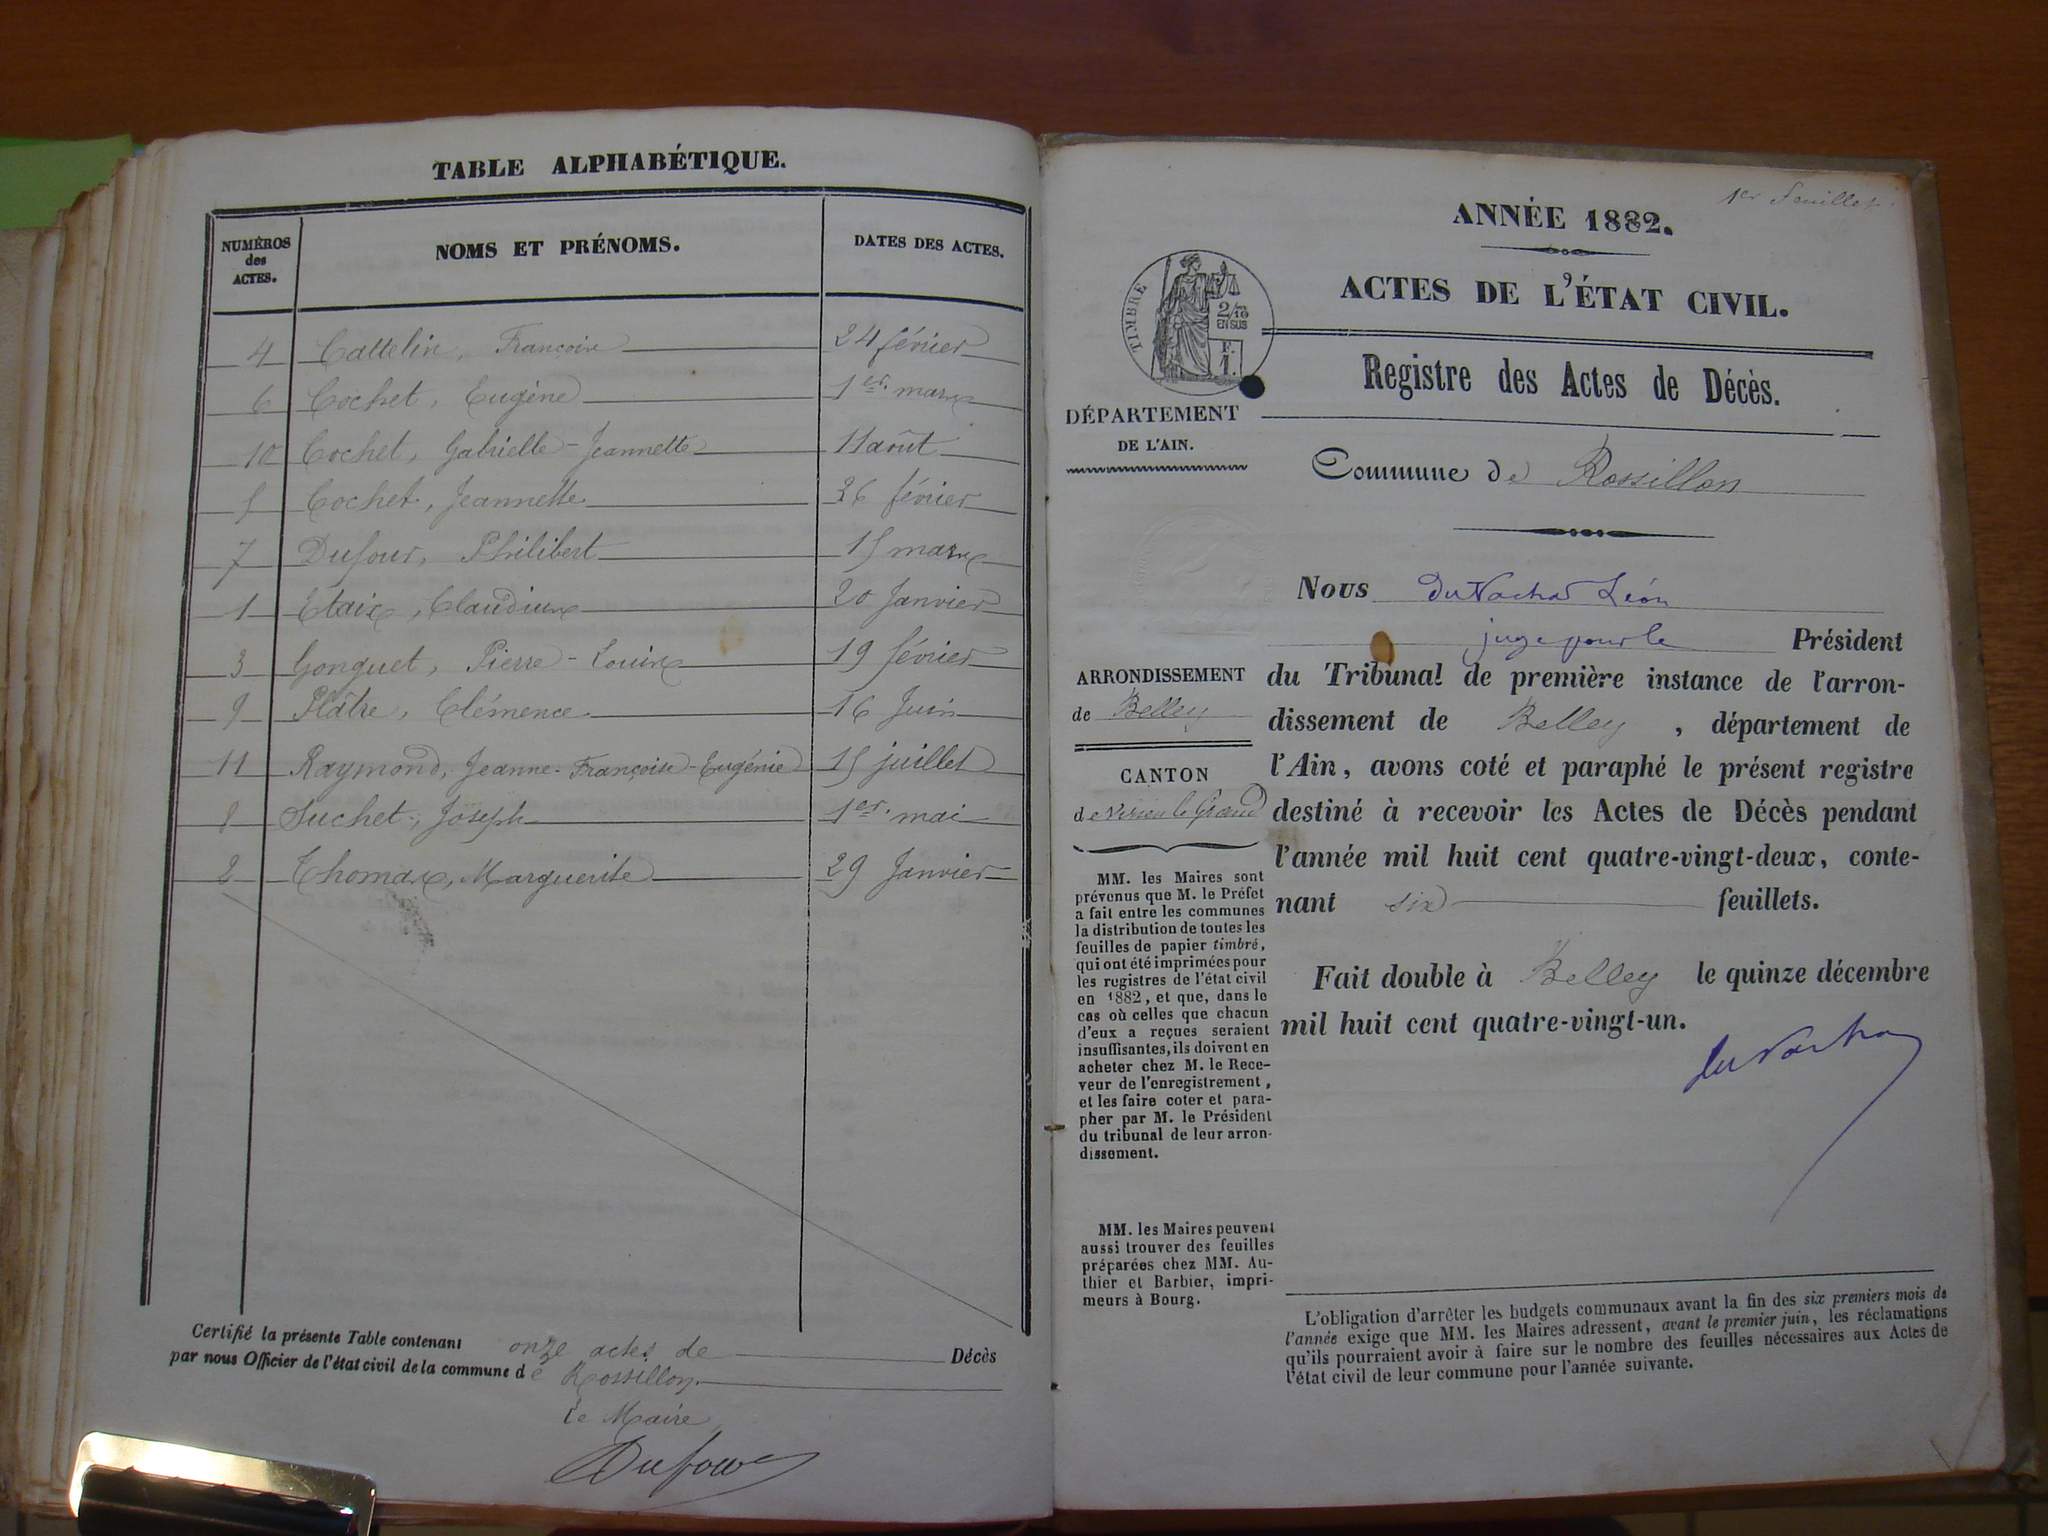 TABLE ALPHABÉTIQUE.
NUMÉROS des ACTES. NOMS ET PRÉNOMS. DATES DES ACTES.
4 Cattelin, Françoise 24 février
6 Cochet, Eugène 1er mars
10 Cochet, Gabrielle-Jeannette 11 août
5 Cochet, Jeannette 26 février
7 Dufour, Philibert 15 mars
1 Etaix, Claudius 20 Janvier
3 Gonguet, Pierre-Louis 19 février
9 Plâtre, Clémence 16 Juin
11 Raymond, Jeanne-Françoise-Eugénie 15 juillet
8 Suchet, Joseph 1er mai
2 Thomas, Marguerite 29 Janvier
Certifié la présente Table contenant onze actes de Décès
par nous Officier de l'état civil de la commune de Rossillon
Le Maire
Dufour
1er feuillet.
ANNÉE 1882.
ACTES DE L'ÉTAT CIVIL.
TIMBRE
2/10
EN SUS
F.
1.
Registre des Actes de Décès.
DÉPARTEMENT
DE L'AIN.
Commune de Rossillon
Nous Léon
juge pour le Président
du Tribunal de première instance de l'arron-
dissement de Belley, département de
l'Ain, avons coté et paraphé le présent registre
destiné à recevoir les Actes de Décès pendant
l'année mil huit cent quatre-vingt-deux, conte-
nant six feuillets.
Fait double à Belley le quinze décembre
mil huit cent quatre-vingt-un.
ARRONDISSEMENT
de Belley
CANTON
de Virieu le Grand
MM. les Maires sont
prévenus que M. le Préfet
a fait entre les communes
la distribution de toutes les
feuilles de papier timbré,
qui ont été imprimées pour
les registres de l'état civil
en 1882, et que, dans le
cas où celles que chacun
d'eux a reçues seraient
insuffisantes, ils doivent en
acheter chez M. le Rece-
veur de l'enregistrement,
et les faire coter et para-
pher par M. le Président
du tribunal de leur arron-
dissement.
MM. les Maires peuvent
aussi trouver des feuilles
préparées chez MM. Au-
thier et Barbier, impri-
meurs à Bourg.
L'obligation d'arrêter les budgets communaux avant la fin des six premiers mois de
l'année exige que MM. les Maires adressent, avant le premier juin, les réclamations
qu'ils pourraient avoir à faire sur le nombre des feuilles nécessaires aux Actes de
l'état civil de leur commune pour l'année suivante.